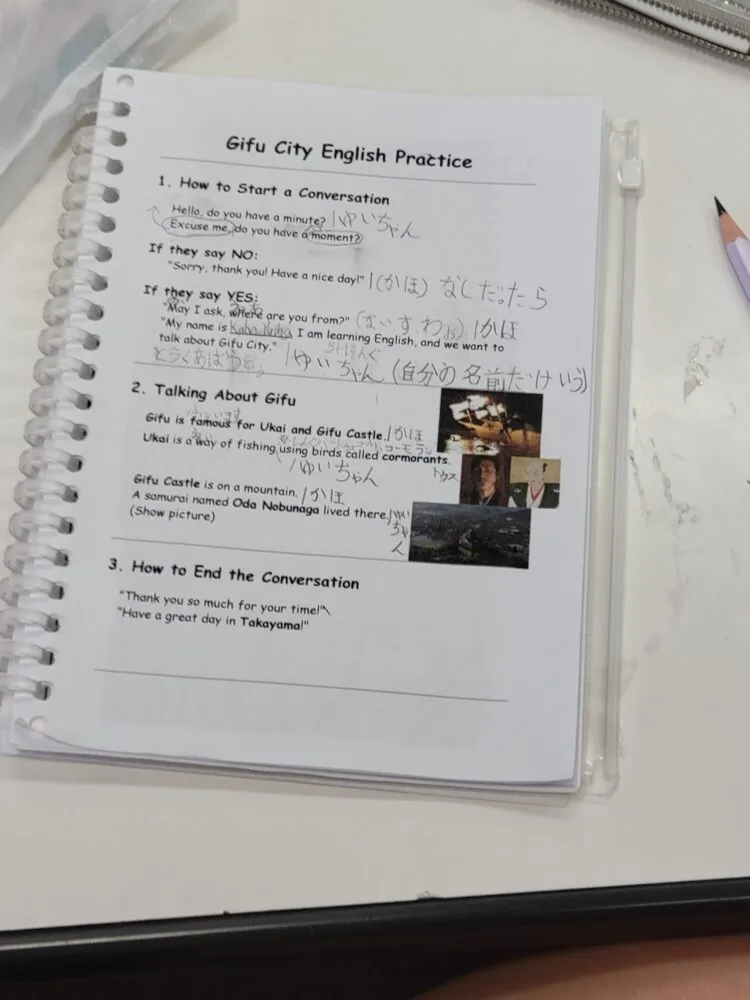 Gifu City English Practice
1. How to Start a Conversation
Hello, do you have a minute? / ゆいちゃん
Excuse me, do you have a moment?
If they say NO:
"Sorry, thank you! Have a nice day!" / (かほ) なしだったら
If they say YES:
"May I ask, where are you from?" / かほ
"My name is Kaho, I am learning English, and we want to
talk about Gifu City." / ゆいちゃん (自分の名前だけいう)
2. Talking About Gifu
Gifu is famous for Ukai and Gifu Castle. / かほ
コーモラン
Ukai is a way of fishing using birds called cormorants.
/ ゆいちゃん
Gifu Castle is on a mountain. / かほ
A samurai named Oda Nobunaga lived there. / ゆいちゃん
(Show picture)
3. How to End the Conversation
"Thank you so much for your time!"
"Have a great day in Takayama!"